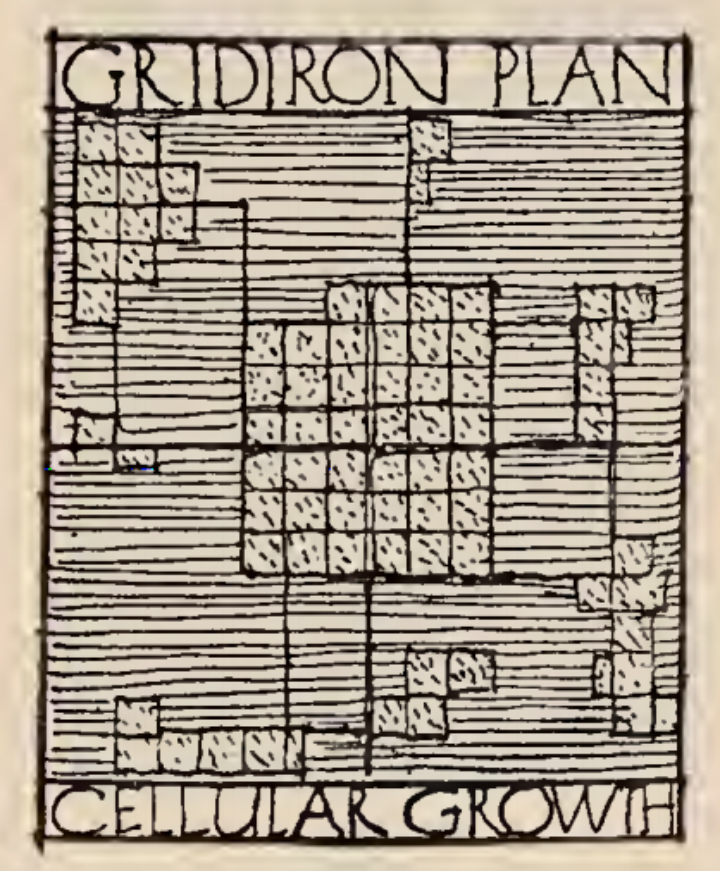 GRIDIRON PLAN
CELLULAR GROWTH